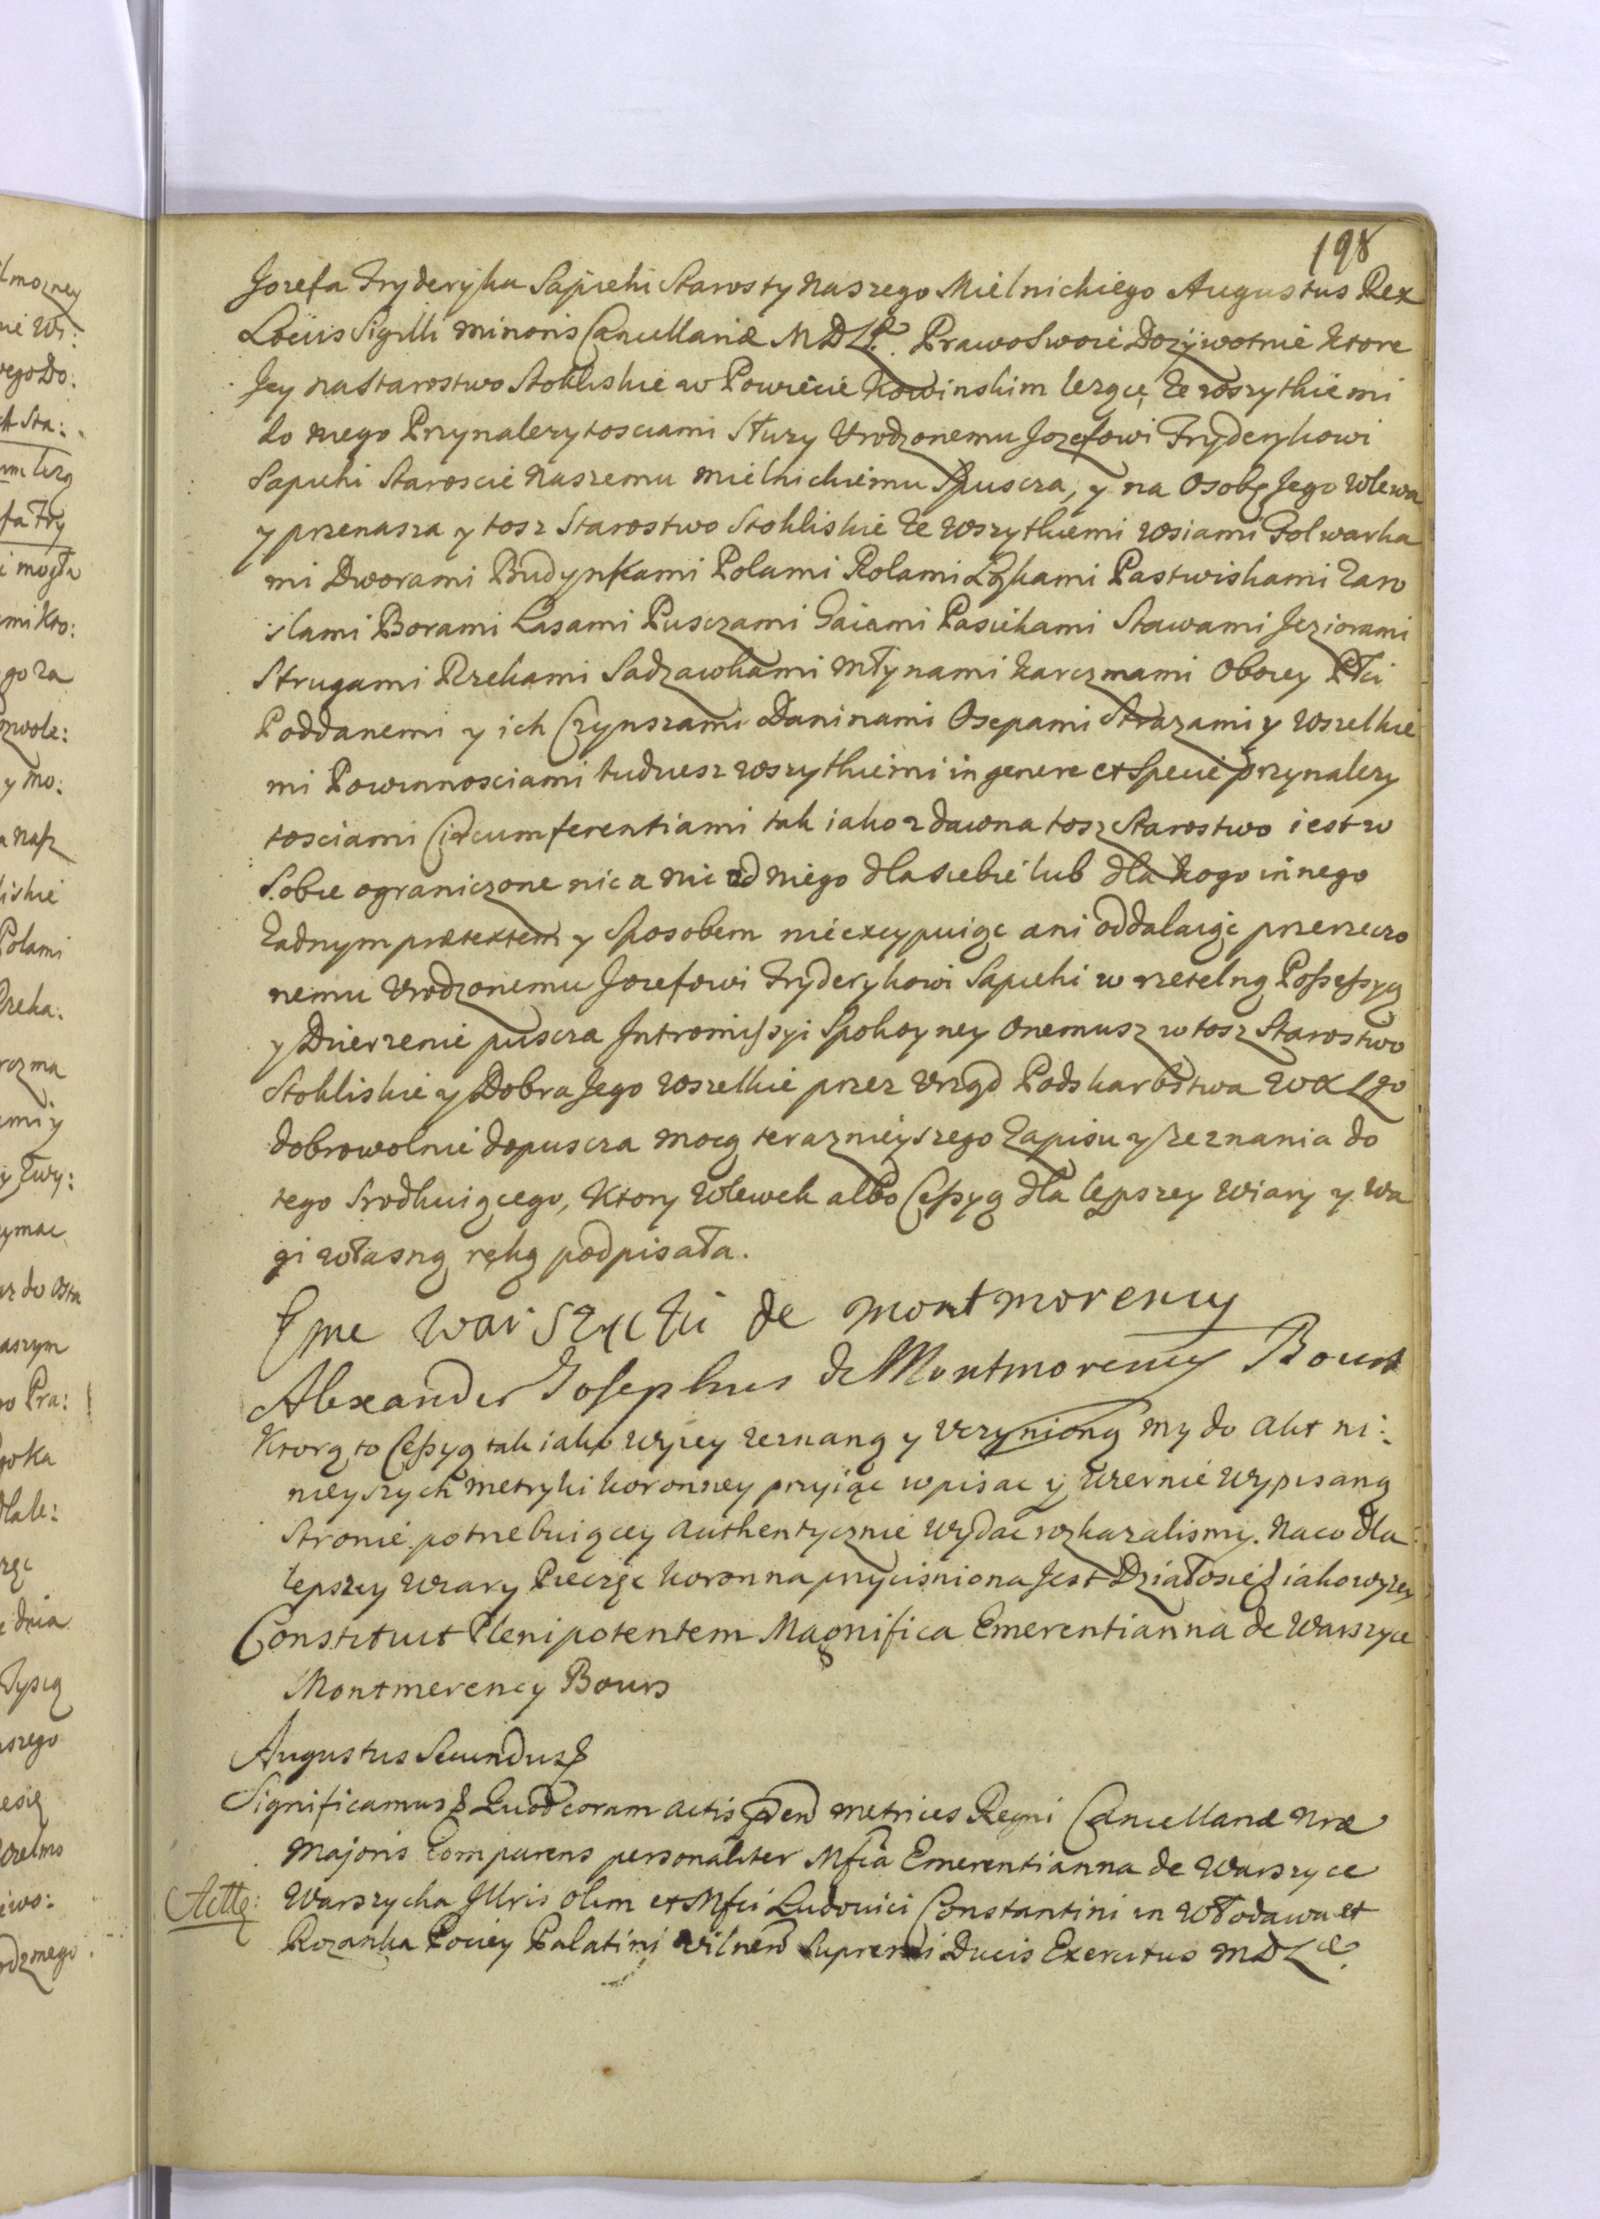 198
Jozefa Fryderyka Sapiehi Starosty Naszego Mielnickiego Augustus Rex
Locus Sigilli minoris Cancellariæ M D L. Prawo Swoie Dozywotnie Ktore
Jey na Starostwo Stokliskie w Powiecie Kowinskim lezące, ze wszytkiemi
do niego Przynalezytosciami słuzy Urodzonemu Jozefowi Fryderykowi
Sapiehi Staroscie Naszemu Mielnickiemu Spuscza, y na Osobę Jego wlewa
y przenasza y tosz Starostwo Stokliskie ze wszytkiemi wsiami Folwarka
mi Dworami Budynkami Polami Rolami Łąkami Pastwiskami Zaro
slami Borami Lasami Pusczami Gaiami Pasiekami Stawami Jeziorami
Strugami Rzekami Sadzawkami Młynami Karczmami Oboiey Płci
Poddanemi y ich Czynszami Daninami Osepami Strazami y wszelkie
mi Powinnosciami tudziesz wszytkiemi in genere et Specie przynalezy
tosciami Circumferentiami tak iako z dawna tosz Starostwo iest w
Sobie ograniczone nic a nic od niego dla siebie lub dla kogo innego
Zadnym prætextem y Sposobem nie excypuiąc ani oddalaiąc przerzeczo
nemu Urodzonemu Jozefowi Fryderykowi Sapiehi w rzetelną Possessyą
y Dzierzenie puscza Intromissyi Spokoyney Onemusz w tosz Starostwo
Stokliskie y Dobra Jego wszelkie przez Urząd Podskarbstwa W X Lgo
dobrowolnie dopuscza mocą teraznieyszego Zapisu y zeznania do
tego Srodkuiącego, Ktory wlewek albo Cessyą dla lepszey wiary y wa
gi własną ręką podpisała.
de Montmorency
Alexander Josephus de Montmorency Bours
Ktorą to Cessyą tak iako wyzey zeznaną y uczynioną my do Akt ni:
nieyszych Metryki Koronney przyiąc wpisac y wiernie wypisaną
Stronie potrzebuiącey Authentycznie wydac rozkazalismy. Na co dla
lepszey wiary Pieczęc Koronna przycisniona Jest Działosię iako wyzey
Constituit Plenipotentem Magnifica Emerentianna de Warszyce
Montmerency Bours
Augustus Secundus
Significamus Quod coram actis præn Metrices Regni Cancellariæ Nræ
Majoris Comparens personaliter Mfca Emerentianna de Warszyce
Warszycka Illris olim et Mfci Ludovici Constantini in Włodawa et
Rozanka Pociey Palatini Vilnen Supremi Ducis Exercitus M D L